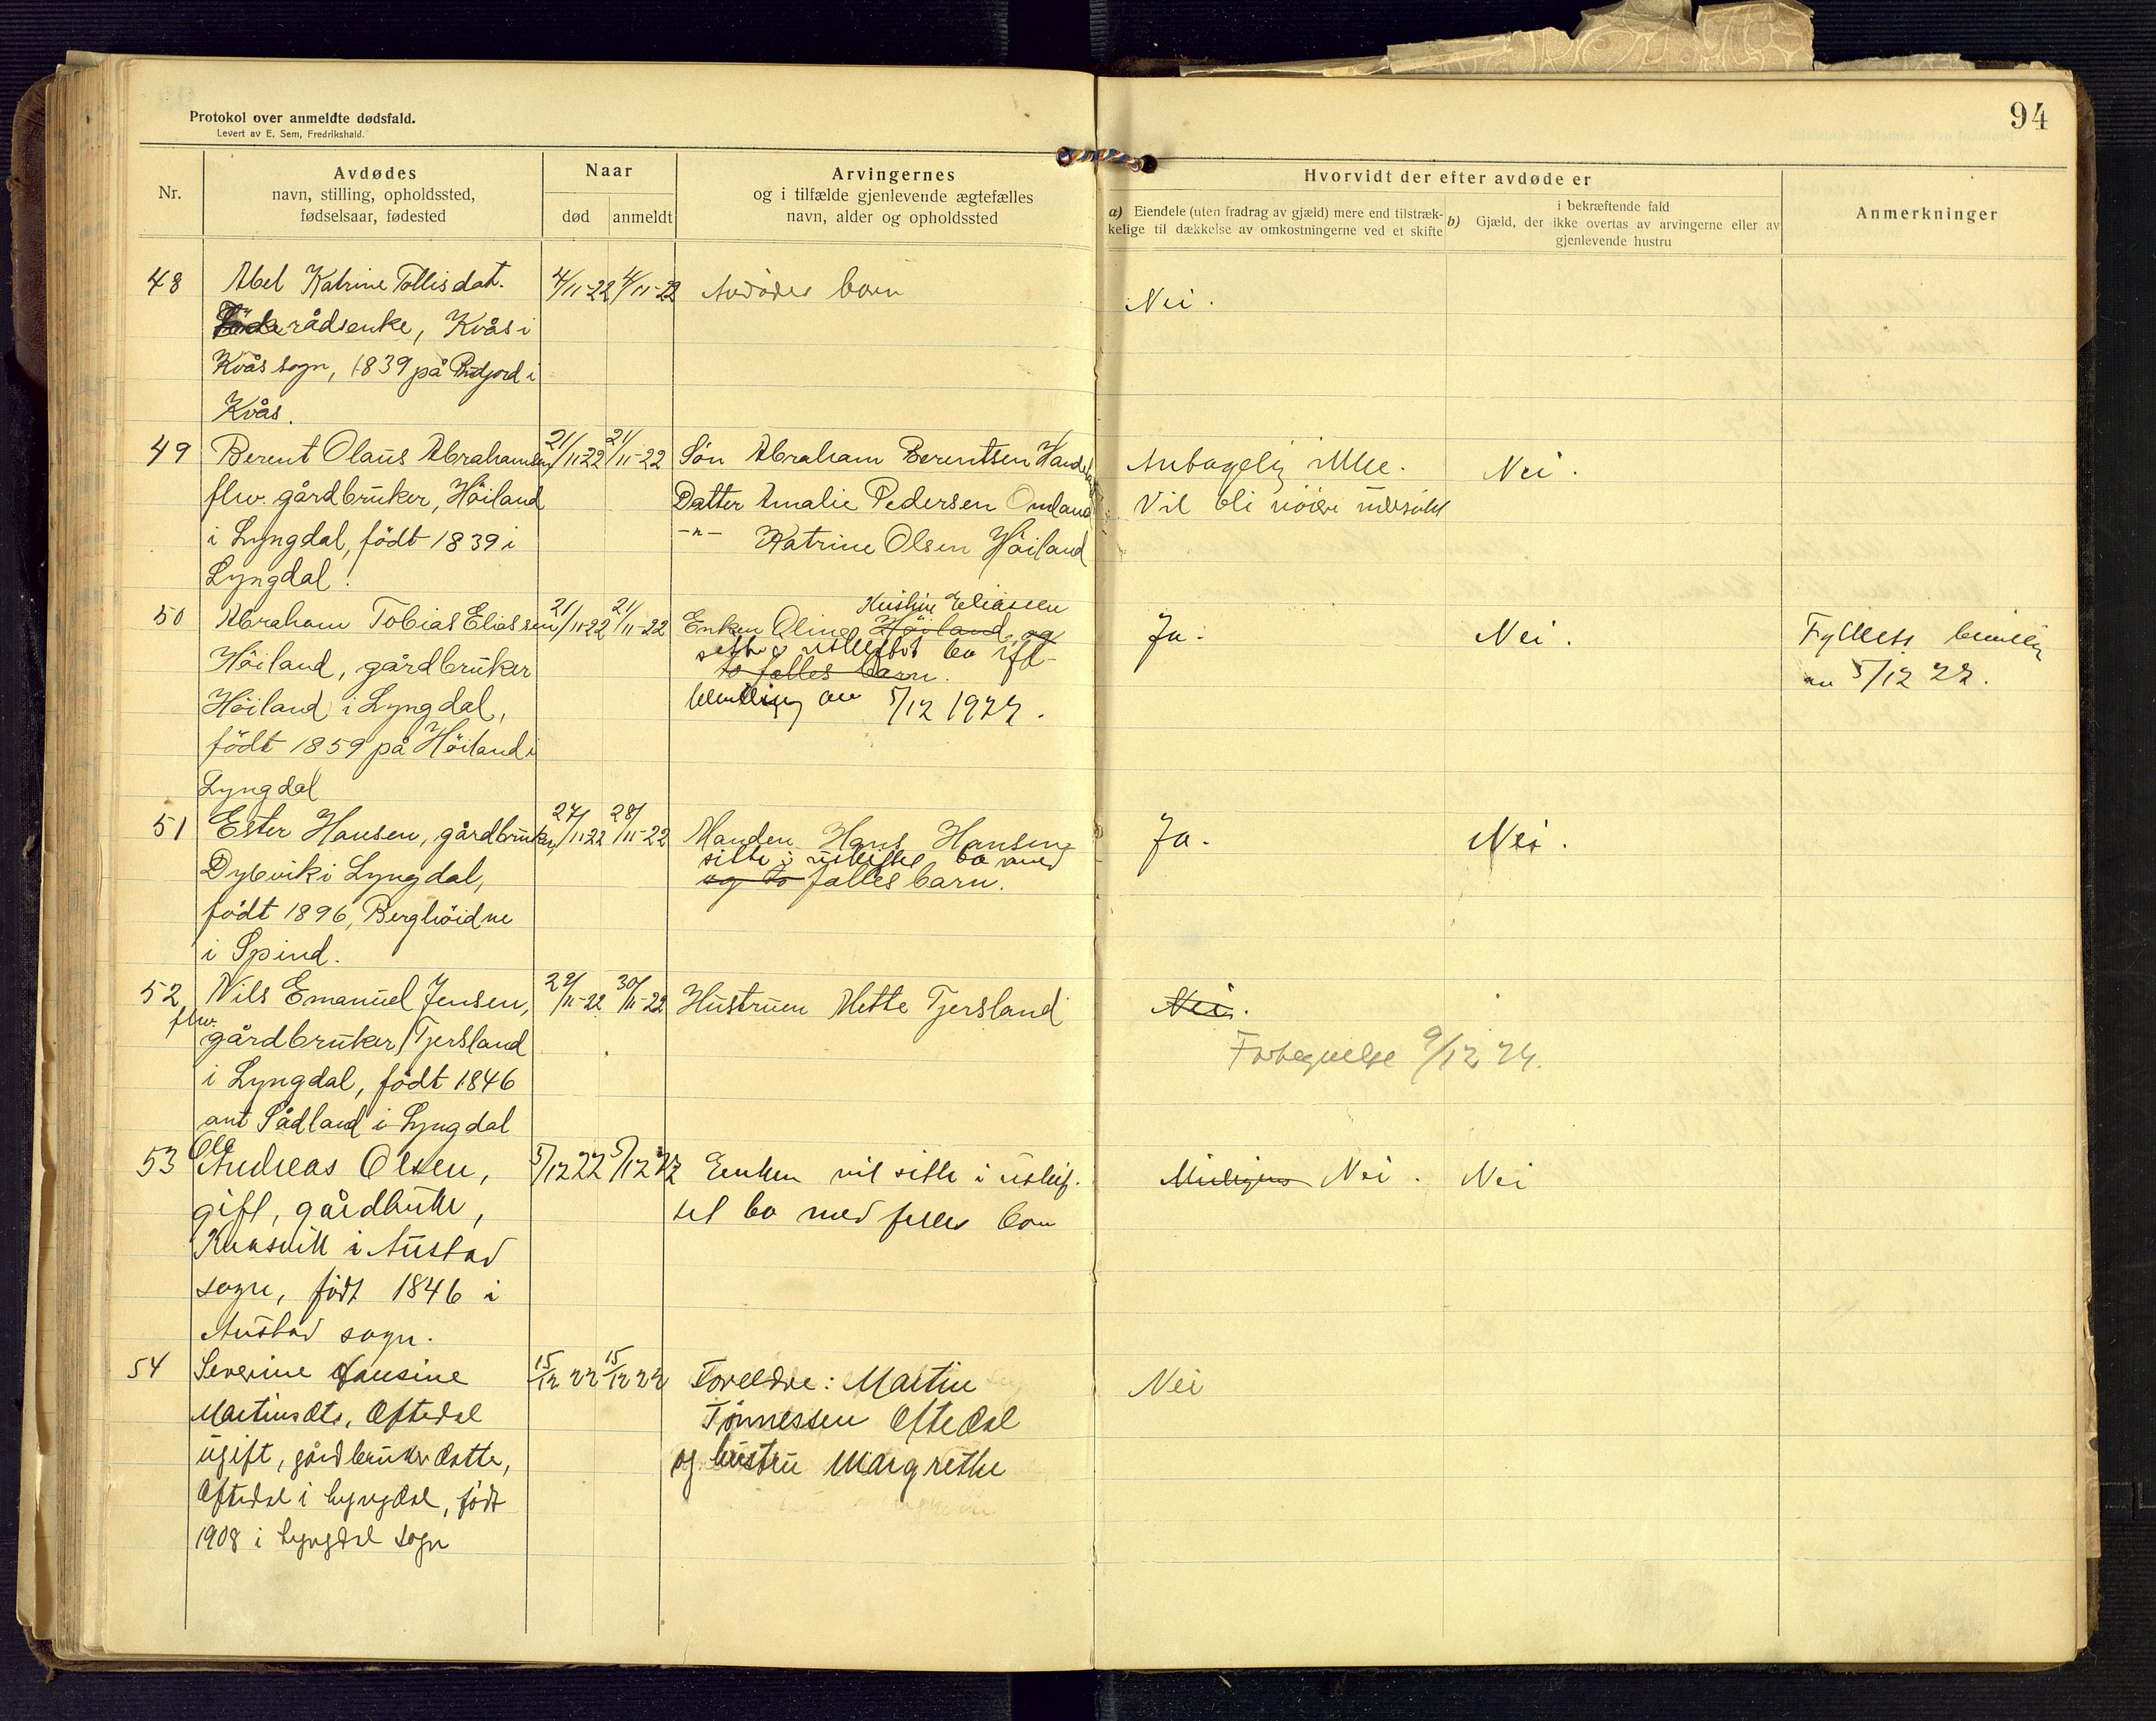 94
Protokol over anmeldte dødsfald.
Levert av E. Sem, Fredrikshald.
Nr.
Avdødes
navn, stilling, opholdssted,
fødselsaar, fødested
Naar
død
anmeldt
Arvingernes
og i tilfælde gjenlevende ægtefælles
navn, alder og opholdssted
Hvorvidt der efter avdøde er
a) Eiendele (uten fradrag av gjæld) mere end tilstræk-
kelige til dækkelse av omkostningerne ved et skifte
b) Gjæld, der i bekræftende fald
ikke overtas av arvingerne eller av
gjenlevende hustru
Anmerkninger
48
Abel Katrine Tollisdat.
rådsenke, Kvås i
Kvås sogn, 1839 på i
Kvås.
4/11-22
4/11-22
Avdødes barn
Nei.
49
Berent Olaus Abrahamsen
flw. gårdbruker, Höiland
i Lyngdal, födt 1839 i
Lyngdal.
21/11-22
21/11-22
Sön Abraham Berentsen
Datter Amalie Pedersen Omland
-"- Katrine Olsen Höiland
Antagelig ikke.
Vil bli nöiere undersökt
Nei.
50
Abraham Tobias Eliassen
Höiland, gårdbruker
Höiland i Lyngdal,
födt 1859 på Höiland i
Lyngdal
21/11-22
21/11-22
Kristine Eliassen
Enken Oline Höiland, og
uskiftet bo
to fælles barn.
av 5/12 1922.
Ja.
Nei.
av 5/12 22.
51
Ester Hansen, gårdbruker,
Dybvik i Lyngdal,
födt 1896, Berghöidne
i Spind.
27/11-22
28/11-22
Manden Hans Hansen
sitte i uskiftet bo med
og to fælles barn.
Ja.
Nei.
52
Nils Emanuel Jensen,
flw.
gårdbruker, Tjersland
i Lyngdal, födt 1846
ant Sådland i Lyngdal
29/11-22
30/11-22
Hustruen Mette Tjersland
Nei.
9/12 24.
53
Ola
Andreas Olsen,
gift, gårdbruker,
i Austad
sogn, födt 1846 i
Austad sogn.
5/12 22
5/12 22
Enken vil sitte i uskif-
tet bo med felles barn
Muligens Nei.
Nei
54
Severine Jansine
Martinsdtr. Oftedal
ugift, gårdbruker datter,
Oftedal i Lyngdal, födt
1908 i Lyngdal sogn
15/12 22
15/12 22
Foreldre: Martin
Tönnessen Oftedal
og hustru Margrethe
Nei